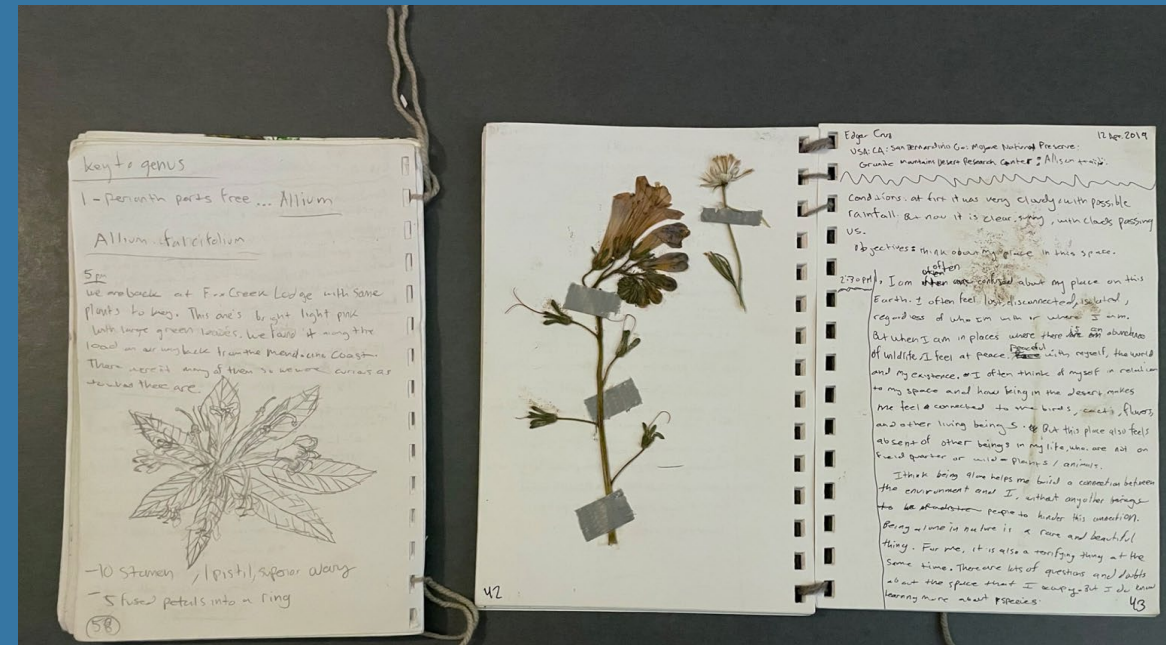 Key to genus
1 - Perianth parts free ... Allium
Allium falcifolium
5pm
we are back at Fox Creek Ledge with some
plants to key. This one's bright light pink
with large green leaves. We found it along the
road on our way back from the Mendocino Coast.
There weren't many of them so we were curious as
to what they are.
-10 stamen , 1 pistil, superior ovary
- 5 fused petals into a ring
58
42
Edgar Cruz
12 Apr. 2019
USA: CA: San Bernardino Co: Mojave National Preserve:
Granite Mountains Desert Research Center: Allison trail.
Conditions: at first it was very cloudy with possible
rainfall. But now it is clear, sunny, with clouds passing
us.
Objectives: think about my place in this space.
2:30 pm
I am often confused about my place on this
Earth. I often feel lost, disconnected, isolated,
regardless of who I'm with or where I am.
But when I am in places where there is an abundance
of wildlife, I feel at peace with myself, the world
and my existence. I often think of myself in relation
to my space and how being in the desert makes
me feel connected to the birds, cacti, flowers
and other living beings. But this place also feels
absent of other beings in my life, who are not on
field quarter or wild plants / animals.
I think being alone helps me build a connection between
the environment and I, without any other beings
people to hinder this connection.
Being alone in nature is a rare and beautiful
thing. For me, it is also a terrifying thing at the
same time. There are lots of questions and doubts
about the space that I occupy. But I do know
learning more about species.
43